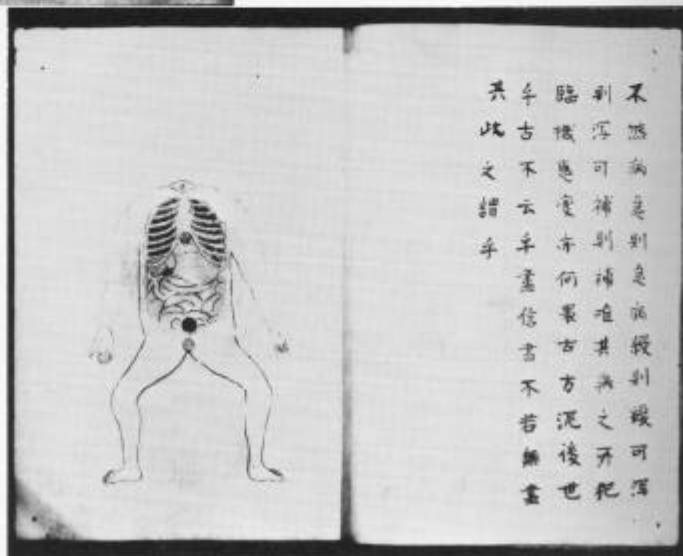 不然病急則急病緩則緩可瀉
則瀉可補則補其病之所犯
臨機應變亦何畏古方況後世
乎古不云乎盡信書不若無書
其此之謂乎